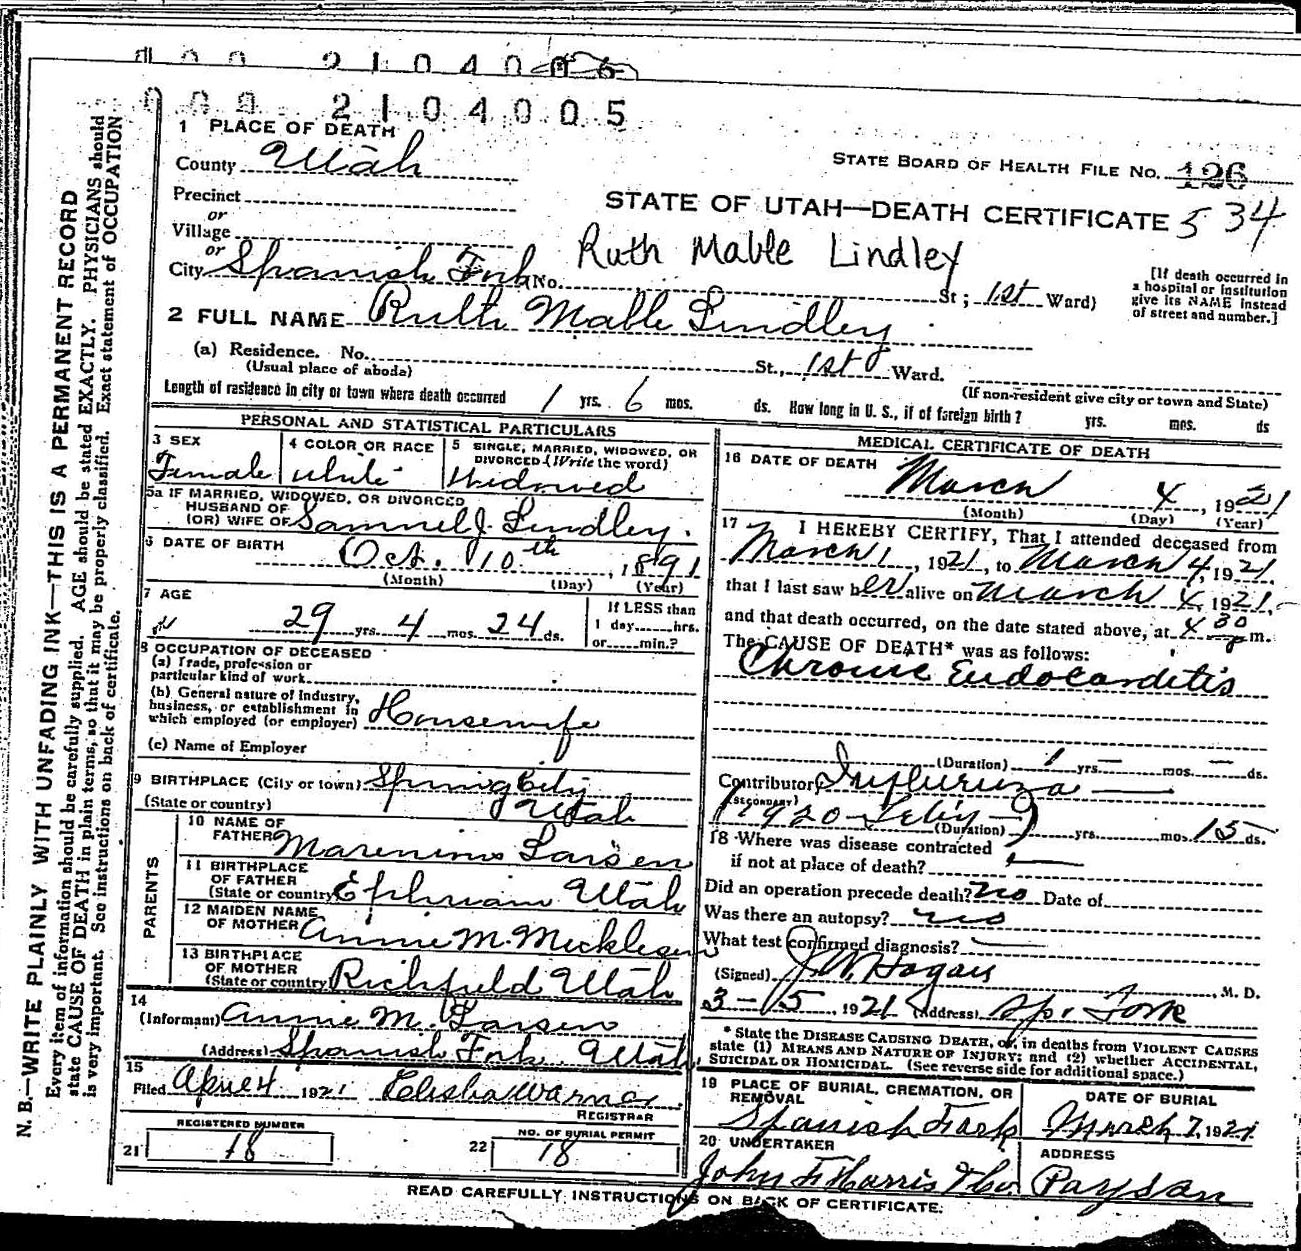 2104006
000 2104005
1 PLACE OF DEATH
County Utah
STATE BOARD OF HEALTH FILE NO. 126
Precinct
or
STATE OF UTAH—DEATH CERTIFICATE 534
Village
or
Ruth Mable Lindley
City Spanish Fork No. St; 1st Ward)
[If death occurred in
a hospital or institution
give its NAME instead
of street and number.]
2 FULL NAME Ruth Mable Lindley
(a) Residence. No. St., 1st Ward.
(Usual place of abode)
(If non-resident give city or town and State)
Length of residence in city or town where death occurred 1 yrs. 6 mos. ds. How long in U. S., if of foreign birth? yrs. mos. ds
PERSONAL AND STATISTICAL PARTICULARS
3 SEX
Female
4 COLOR OR RACE
white
5 SINGLE, MARRIED, WIDOWED, OR
DIVORCED (Write the word)
Widowed
5a IF MARRIED, WIDOWED, OR DIVORCED
HUSBAND OF
(OR) WIFE OF Samuel J. Lindley.
6 DATE OF BIRTH Oct. 10th, 1891
(Month) (Day) (Year)
7 AGE
29 yrs. 4 mos. 24 ds.
If LESS than
1 day hrs.
or min.?
8 OCCUPATION OF DECEASED
(a) Trade, profession or
particular kind of work
(b) General nature of Industry,
business, or establishment in
which employed (or employer) Housewife
(c) Name of Employer
9 BIRTHPLACE (City or town) Spring City
(State or country) Utah
PARENTS
10 NAME OF
FATHER Larsen
11 BIRTHPLACE
OF FATHER
(State or country) Ephriam Utah
12 MAIDEN NAME
OF MOTHER Annie M. Micklesen
13 BIRTHPLACE
OF MOTHER
(State or country) Richfield Utah
14
(Informant) Annie M. Larsen
(Address) Spanish Fork Utah
15
Filed April 4 1921 Elisha Warner
REGISTRAR
REGISTERED NUMBER
21 18
NO. OF BURIAL PERMIT
22 18
MEDICAL CERTIFICATE OF DEATH
16 DATE OF DEATH
March 4, 1921
(Month) (Day) (Year)
17 I HEREBY CERTIFY, That I attended deceased from
March 1, 1921, to March 4, 1921
that I last saw her alive on March 4, 1921,
and that death occurred, on the date stated above, at 4 30 p m.
The CAUSE OF DEATH* was as follows:
Chronic Endocarditis
(Duration) 1 yrs — mos. — ds.
Contributory Influenza
(SECONDARY)
(1920 — ) (Duration) yrs. mos. 15 ds.
18 Where was disease contracted
if not at place of death?
Did an operation precede death? no Date of
Was there an autopsy? no
What test confirmed diagnosis?
(Signed) J.W. Hagan, M. D.
3-5, 1921 (Address) Sp. Fork
* State the DISEASE CAUSING DEATH, or, in deaths from VIOLENT CAUSES
state (1) MEANS AND NATURE OF INJURY; and (2) whether ACCIDENTAL,
SUICIDAL OR HOMICIDAL. (See reverse side for additional space.)
19 PLACE OF BURIAL, CREMATION, OR
REMOVAL
Spanish Fork
DATE OF BURIAL
March 7, 1921
20 UNDERTAKER
John F. Harris & Co.
ADDRESS
Payson
READ CAREFULLY INSTRUCTIONS ON BACK OF CERTIFICATE.
N. B.—WRITE PLAINLY, WITH UNFADING INK—THIS IS A PERMANENT RECORD
Every item of information should be carefully supplied. AGE should be stated EXACTLY. PHYSICIANS should
state CAUSE OF DEATH in plain terms, so that it may be properly classified. Exact statement of OCCUPATION
is very important. See instructions on back of certificate.